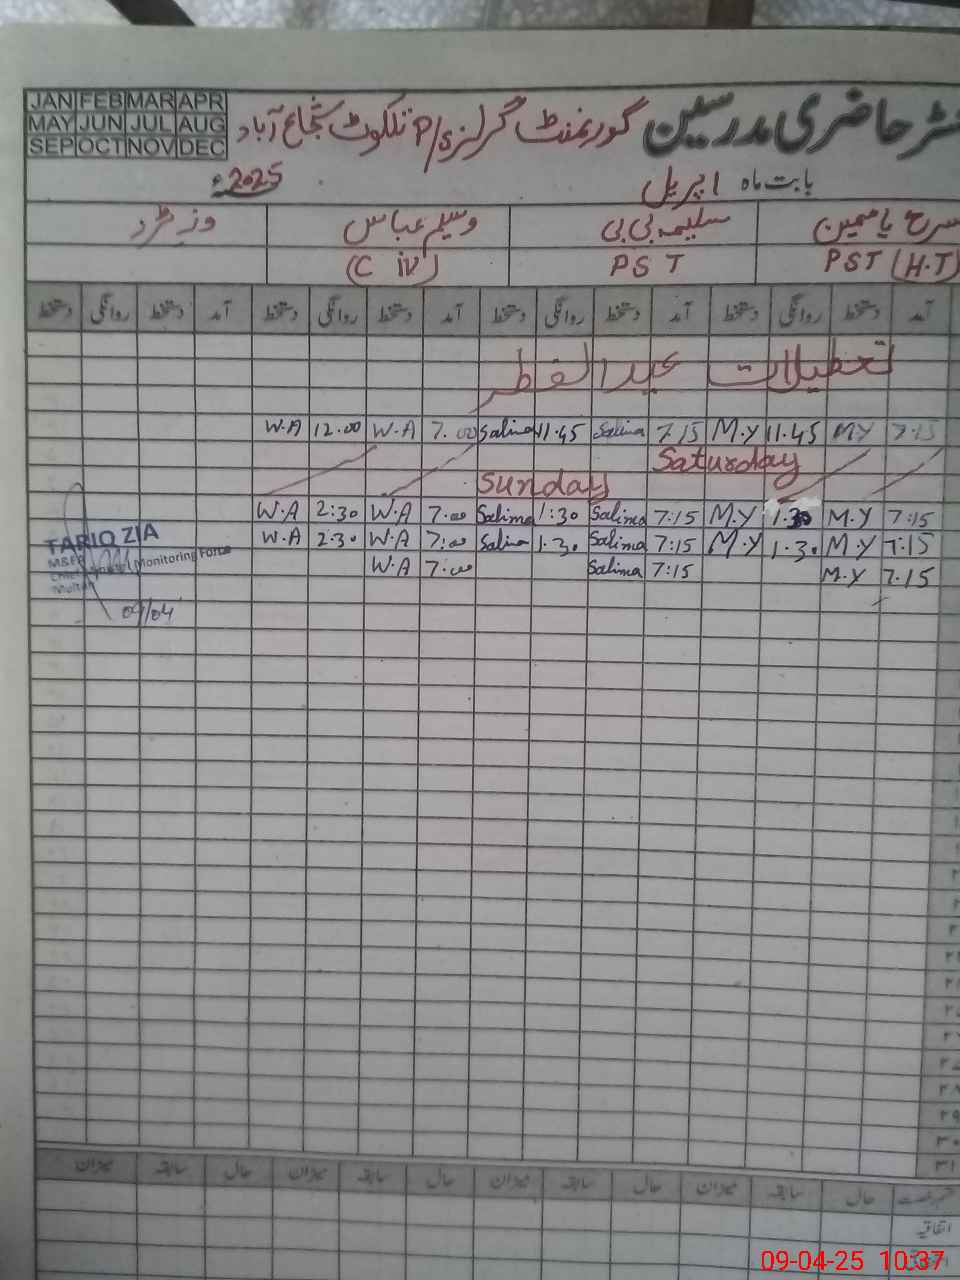 JAN FEB MAR APR
MAY JUN JUL AUG
SEP OCT NOV DEC
حاضری مدرسین گورنمنٹ گرلز P/S شجاع آباد
بابت ماہ اپریل 2025ء
یاسمین سلیمہ بی بی وسیم عباس وزیٹرد
PST (H.T) PST (C iv)
آمد دستخط روانگی دستخط آمد دستخط روانگی دستخط آمد دستخط روانگی دستخط آمد دستخط روانگی دستخط
تعطیلات عید الفطر
W.A 12.00 W.A 7.00 Salima 11.45 Salima 7.15 M.Y 11.45 M.Y 7.15
Saturday
Sunday
W.A 2:30 W.A 7.00 Salima 1:30 Salima 7:15 M.Y 1.30 M.Y 7:15
W.A 2.30 W.A 7:00 Salima 1.30 Salima 7:15 M.Y 1.30 M.Y 7.15
W.A 7.00 Salima 7:15 M.Y 7.15
TARIQ ZIA
Monitoring Force
Multan
09/04
۲۸
۲۹
۳۰
۳۱
حال سابقہ میزان حال سابقہ میزان حال سابقہ میزان حال سابقہ میزان
اتفاقیہ
09-04-25 10:37